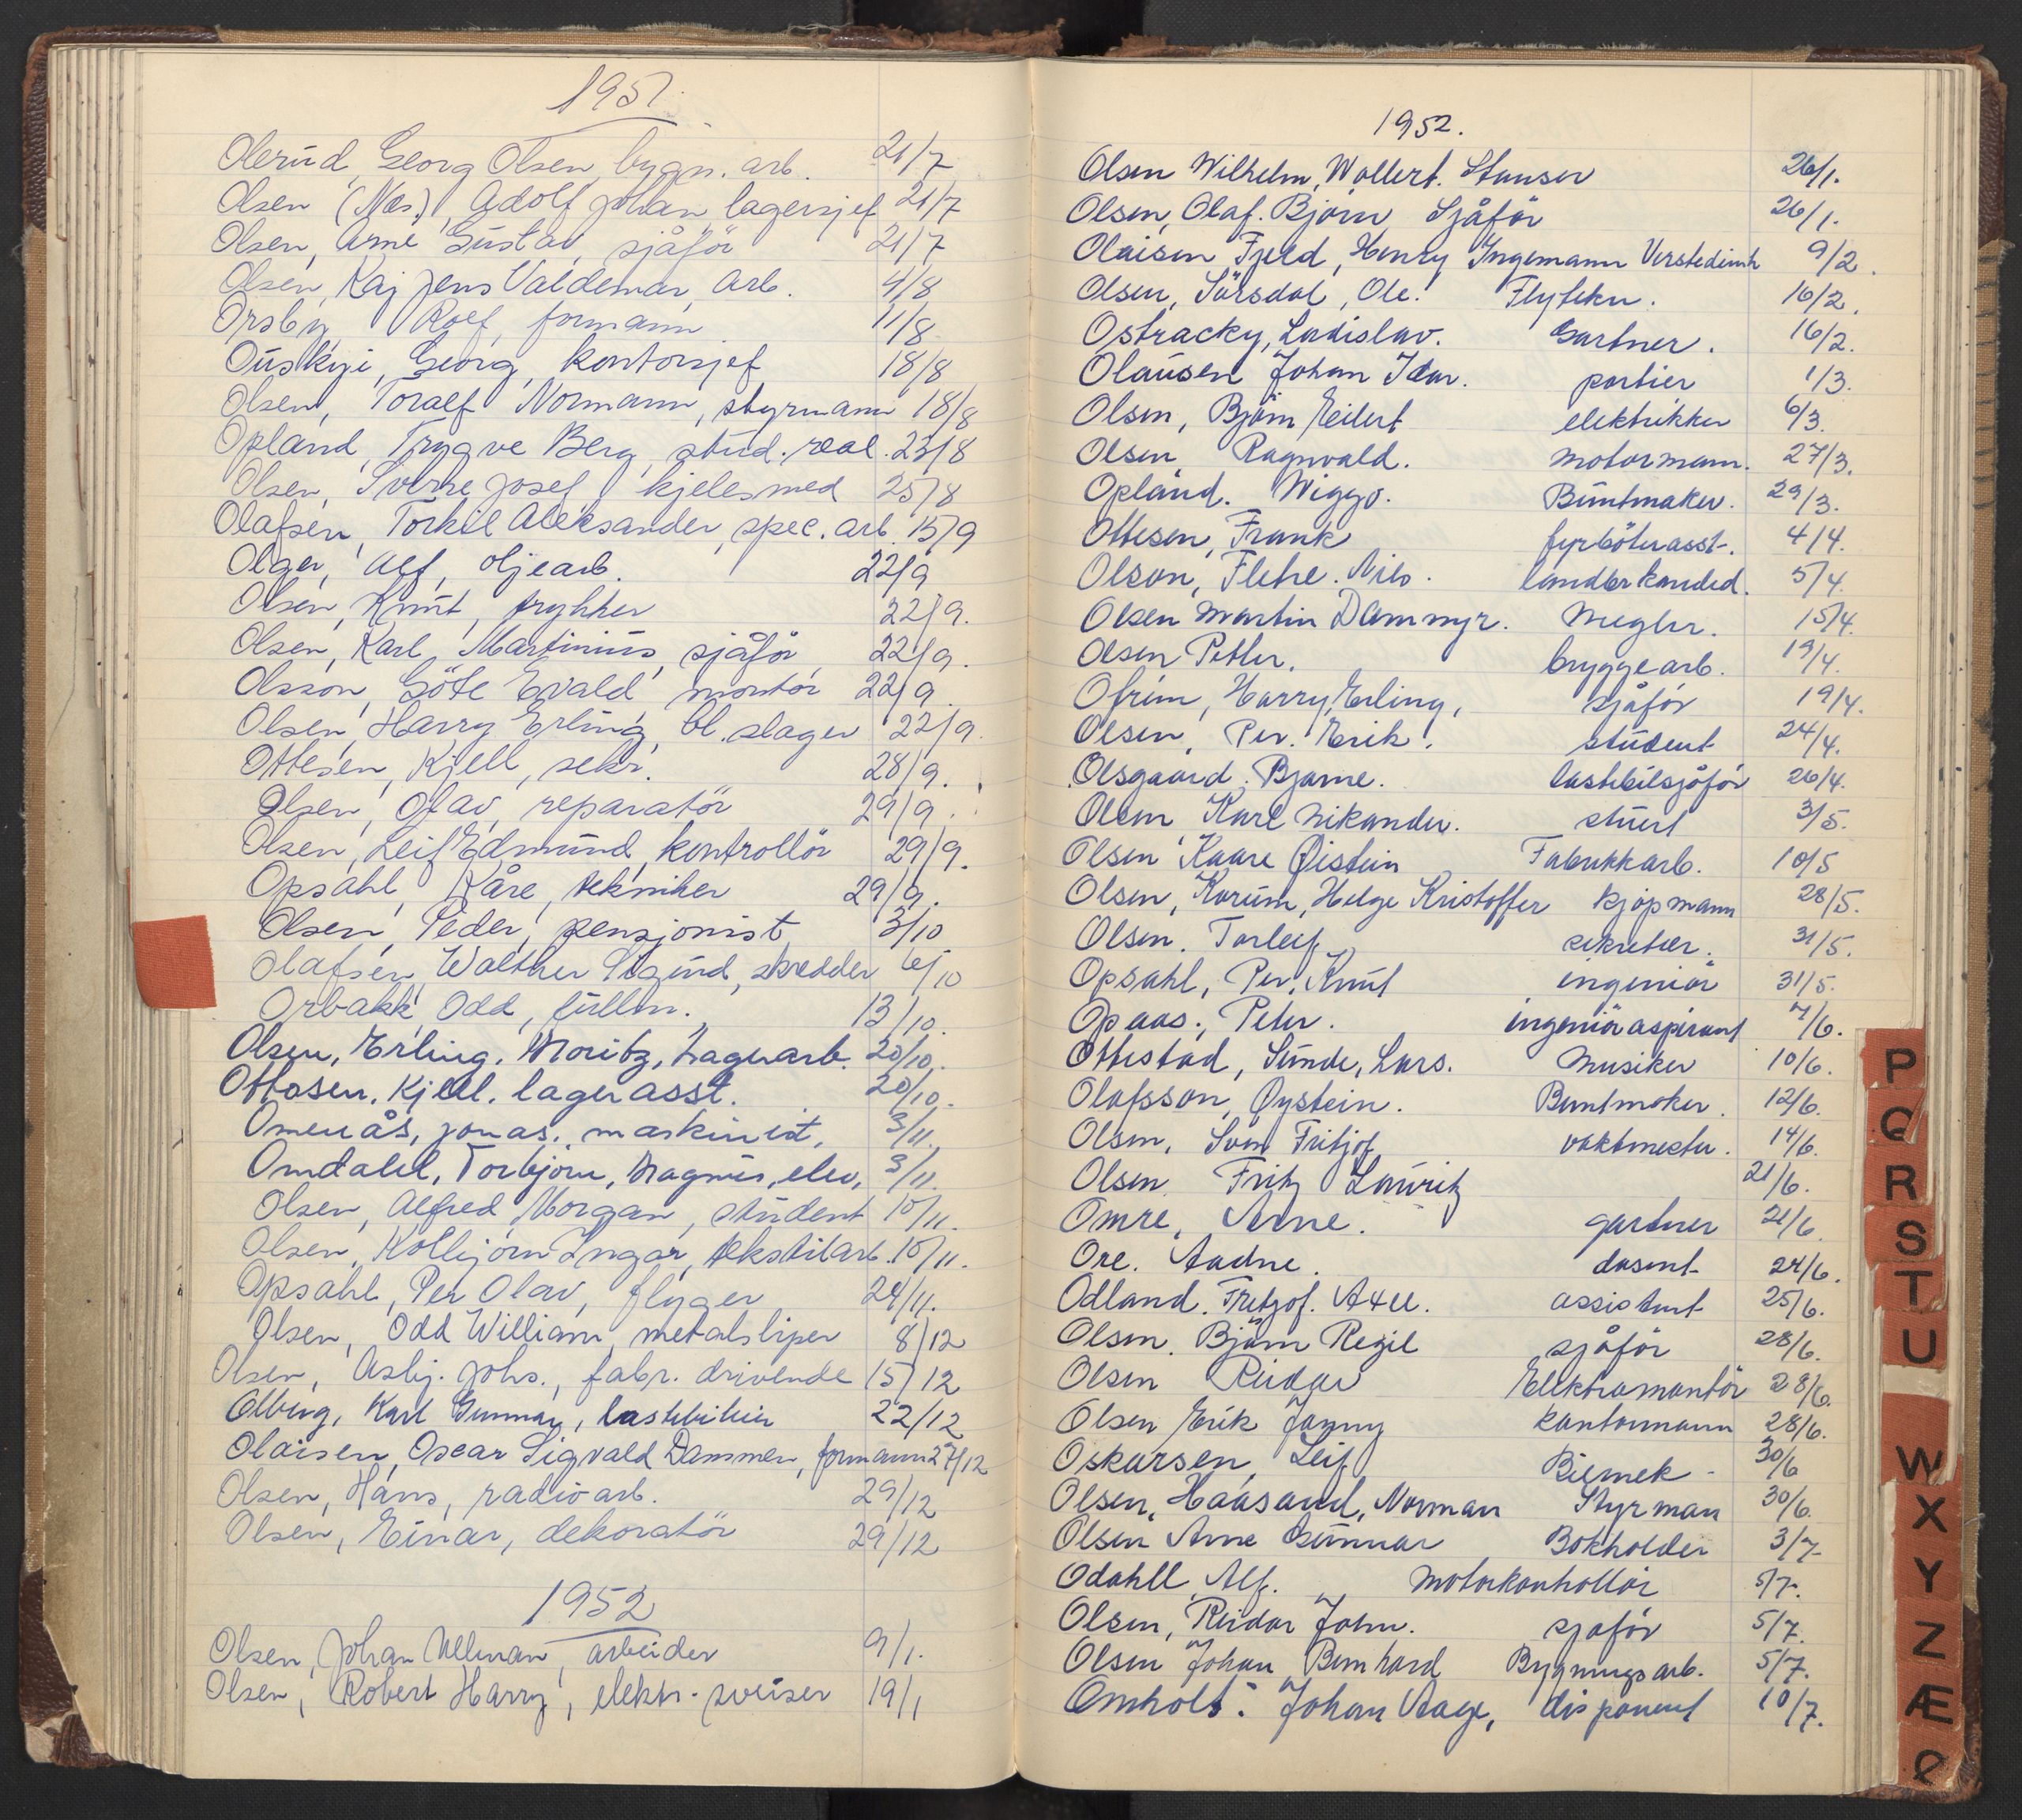 1951.
Olerud, Georg Olsen, bygn. arb. 21/7
Olsen (Næs), Adolf Johan lagersjef 21/7
Olsen, Arne Gustav, sjåför 21/7
Olsen, Kaj Jens Valdemar, arb. 4/8
Orsby, Rolf, formann 11/8
Ouskyi, Georg, kontorsjef 18/8
Olsen, Toralf Normann, styrmann 18/8
Opland, Trygve Berg, stud. real. 23/8
Olsen, Sverre Josef, kjelesmed 25/8
Olafsen, Torkil Aleksander, spec. arb. 15/9
Olger, Alf, oljearb. 22/9
Olsen, Knut, trykker 22/9.
Olsen, Karl Martinius, sjåför, 22/9.
Olsson, Göte Evald, montör 22/9.
Olsen, Harry Erling, bl. slager 22/9.
Ottesen, Kjell, sekr. 28/9.
Olsen, Olav, reparatör 29/9.
Olsen, Leif Edmund, kontrollör 29/9.
Opsahl, Kåre, tekniker 29/9.
Olsen, Peder, pensjonist, 3/10
Olafsen, Walther Sigurd, skredder 6/10
Orbakk, Odd, fullm. 13/10.
Olsen, Erling, Moritz, Lagerarb. 20/10.
Ottosen, Kjell. lagerasst. 20/10.
Omenås, Jonas, maskinist, 3/11.
Omdahl, Torbjörn, Magnus, elev, 3/11.
Olsen, Alfred Morgan, student 10/11.
Olsen, Kolbjörn Ingar, tekstilarb. 10/11.
Opsahl, Per Olav, flyger 24/11.
Olsen, Odd William, metalsliper 8/12
Olsen, Asbj. Johs., fabr. drivende 15/12
Olberg, Karl Gunnar, 22/12
Olaisen, Oscar Sigvald Dammen, formann 27/12
Olsen, Hans, radioarb. 29/12
Olsen, Einar, dekoratör 29/12
1952
Olsen, Johan Ullman, arbeider 9/1.
Olsen, Robert Harry, elektr. sveiser 19/1
1952.
Olsen Wilhelm, Wollert. Stanser 26/1.
Olsen, Olaf. Björn Sjåför 26/1.
Olaisen Fjeld, Henry Ingemann 9/2.
Olsen, Sörsdal, Ole. Flytekn. 16/2.
Ostracky, Ladislav. Gartner. 16/2.
Olausen Johan Idar. portier 1/3.
Olsen, Björn Eilert elektrikker 6/3.
Olsen, Ragnvald. motormann. 27/3.
Opland. Wiggo. Buntmaker. 29/3.
Ottesen, Frank fyrböterasst. 4/4.
Olson, Nils. 5/4.
Olsen Martin Dammyr. Megler. 15/4.
Olsen Petter. bryggearb. 19/4.
Ofrim, Harry, Erling, sjåför 19/4.
Olsen, Per. Erik. student 24/4.
Olsgaard. Bjarne. lastebilsjåför 26/4.
Olsen Karl Nikander. stuert 3/5.
Olsen Kaare Øistein Fabrikkarb. 10/5
Olsen, Korum, Helge Kristoffer kjöpmann 28/5.
Olsen. Torleif sekretær. 31/5.
Opsahl, Per. Knut ingeniör 31/5.
Opaas., Peter. ingeniöraspirant 7/6.
Ottestad, Sunde, Lars. Musiker 10/6.
Olafsson, Øystein. Buntmaker. 12/6.
Olsen, Sven Fritjof vaktmester. 14/6.
Olsen Fritz Lauritz 21/6.
Omre, Arne. gartner 21/6.
Ore. Aadne. dosent 24/6.
Odland. Fritjof. Axel. assistent 25/6.
Olsen. Björn Regil sjåför 28/6.
Olsen Reidar Elektromontör 28/6.
Olsen Erik Jonny kontormann 28/6.
Oskarsen, Leif Bilmek. 30/6
Olsen, Haasand, Norman Styrman 30/6.
Olsen Arne Gunnar Bokholder 3/7
Odahll, Alf. Motorkontrollör 5/7.
Olsen, Reidar John. sjåför 5/7.
Olsen Johan Bernhard Bygningsarb. 5/7.
Omholt. Johan Aage, disponent 10/7.
P
Q
R
S
T
U
W
X
Y
Z
Æ
Ø